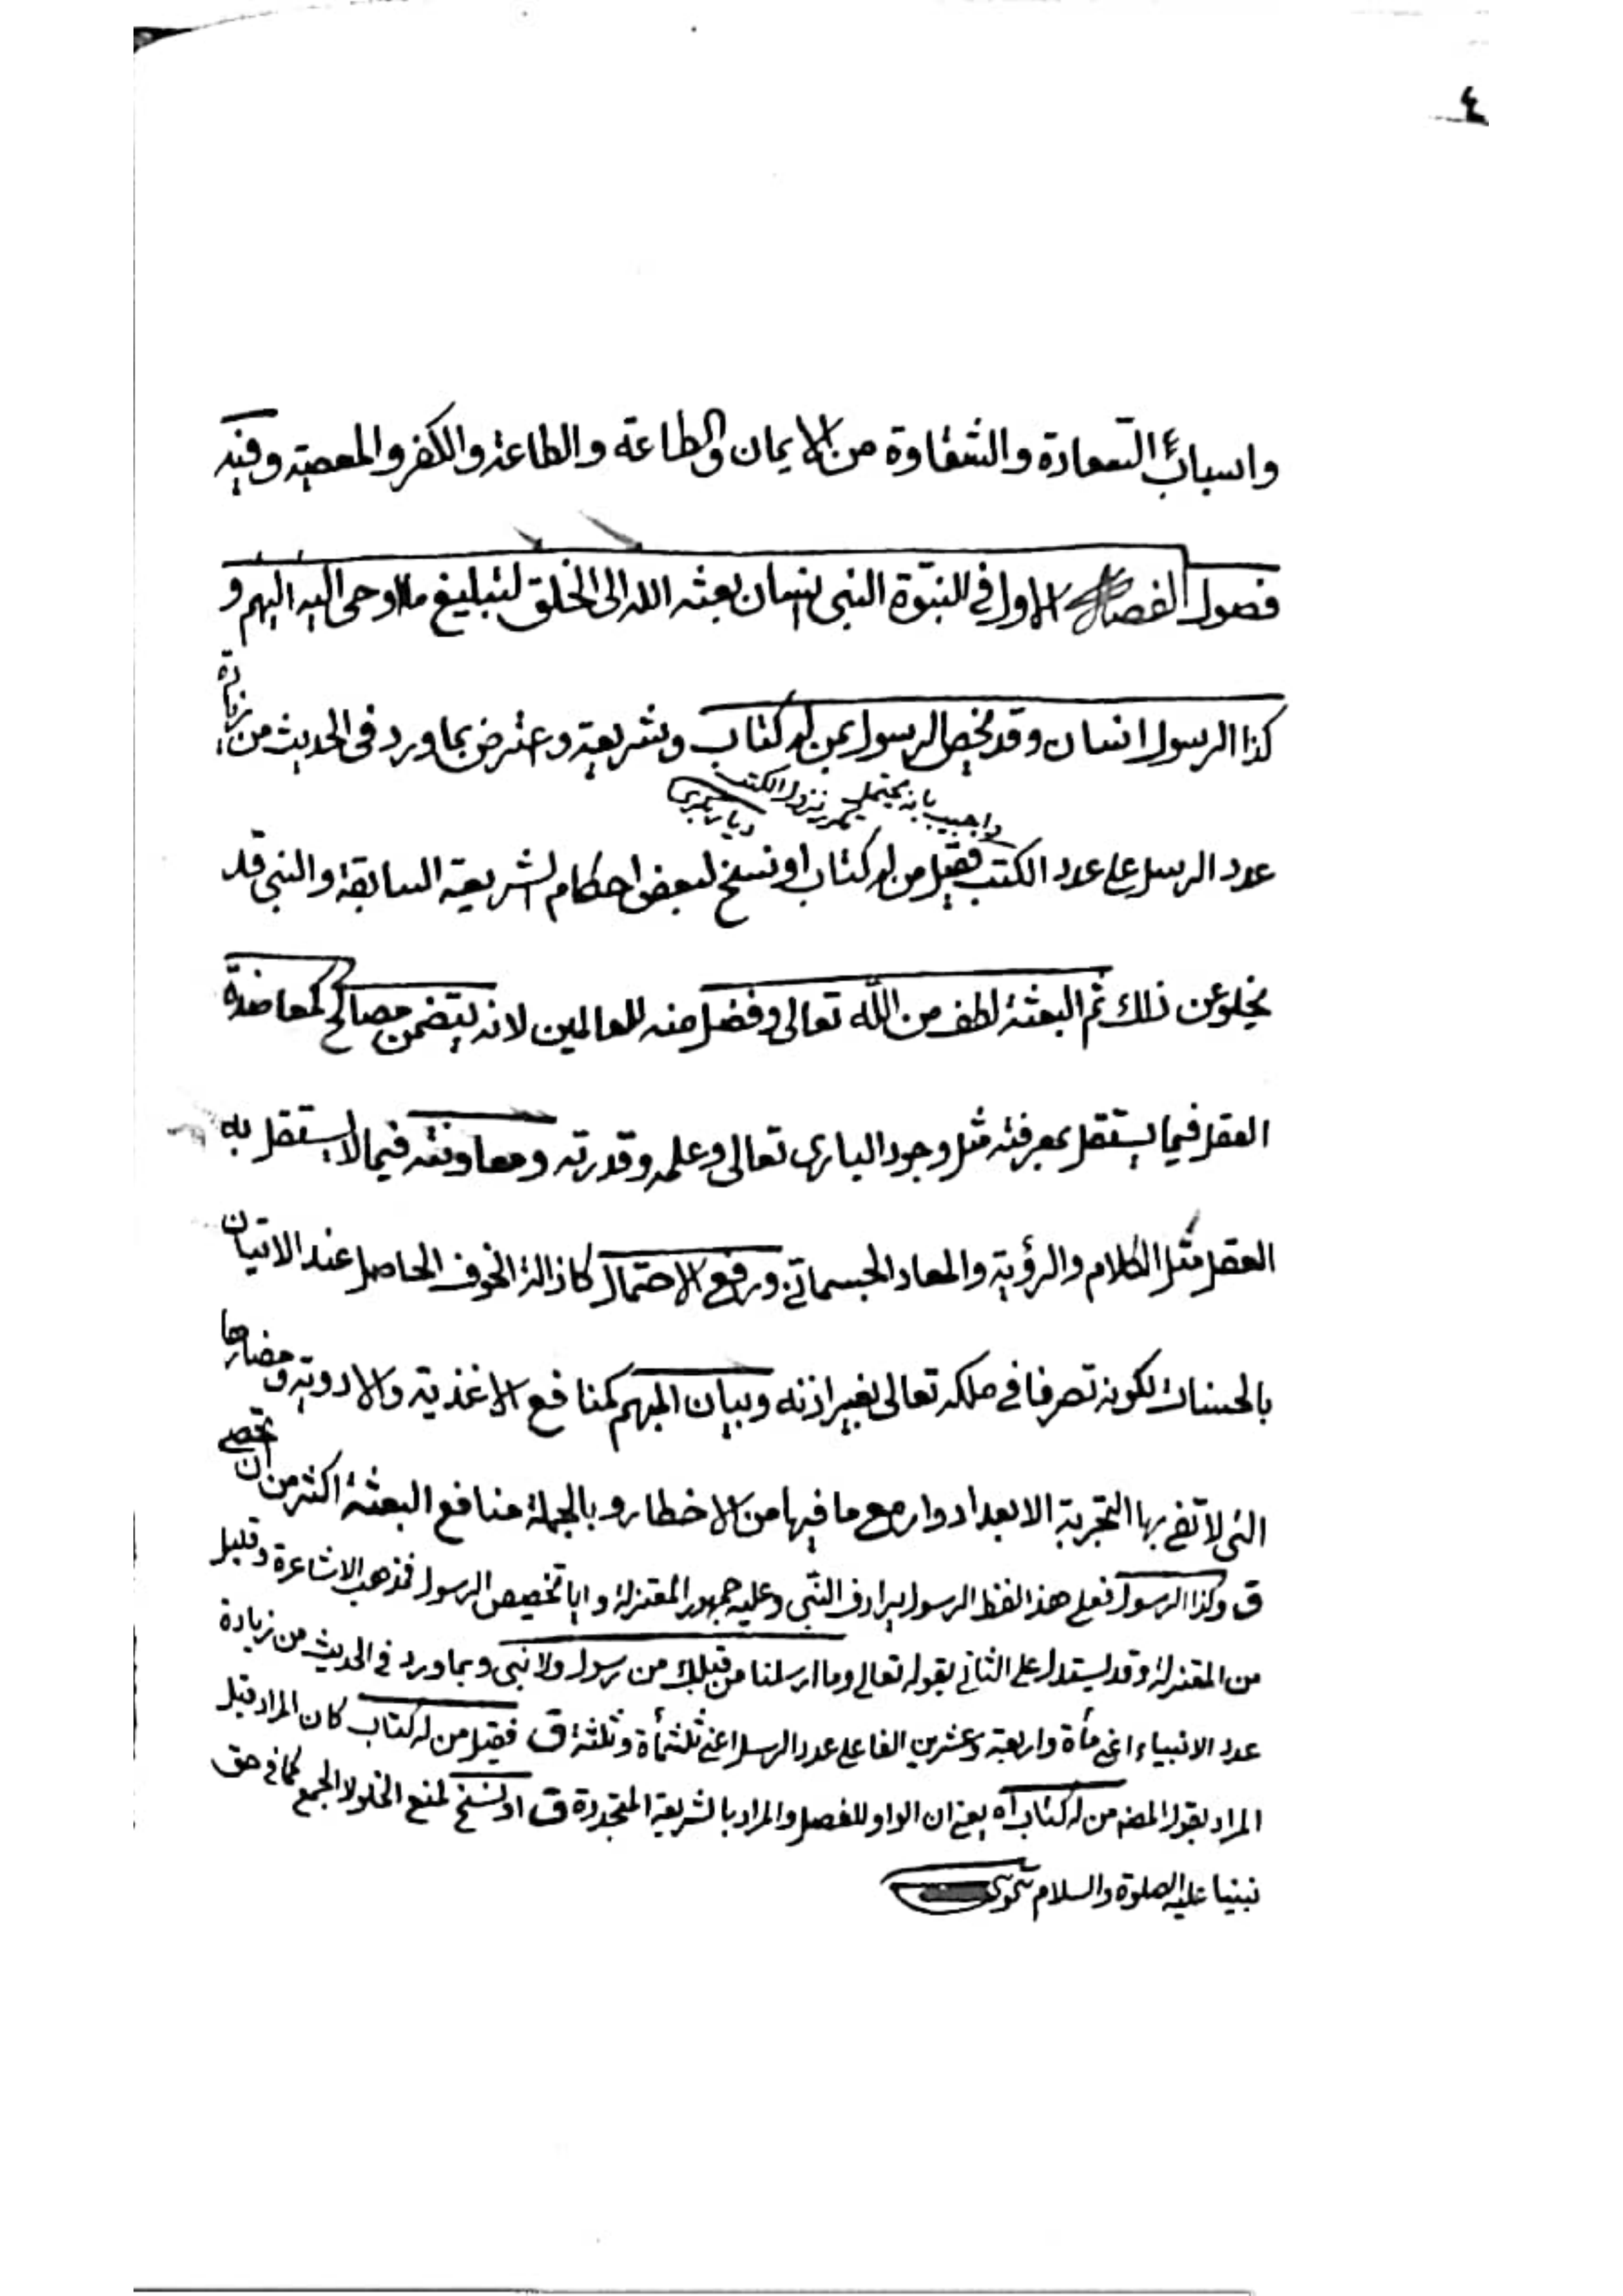 ٤
واسباب السعادة والشقاوة من الايمان والطاعة والطاعة والكفر والمعصية وفيه
فصول الفصل الاول في النبوة النبي انسان بعثه الله الى الخلق لتبليغ ما اوحى اليه اليهم و
كذا الرسول انسان وقد يخص الرسول بمن له كتاب وشريعة وعترض بما ورد في الحديث من زيادة
واجيب بانه يحتمل نزول الكتب
عدد الرسل على عدد الكتب فقيل من له كتاب او نسخ لبعض احكام الشريعة السابقة والنبي قد
يخلو عن ذلك ثم البعثة لطف من الله تعالى وفضل منه للعالمين لانه يتضمن مصالح كمعاضدة
العقل فيما يستقل بمعرفته مثل وجود البارى تعالى وعلمه وقدرته ومعاونته فيما لا يستقل به
العقل مثل الكلام والرؤية والمعاد الجسماني ورفع الاحتمال كازالة الخوف الحاصل عند الاتيان
بالحسنات لكونه تصرفا في ملكه تعالى بغير اذنه وبيان المبهم كمنافع الاغذية والادوية ومضارها
التى لا تفي بها التجربة الا بعد ادوار مع ما فيها من الاخطار وبالجملة منافع البعثة اكثر من ان تحصى
ق وكذا الرسول فعلى هذا لفظ الرسول يرادف النبي وعليه جمهور المعتزلة واما تخصيص الرسول فمذهب الاشاعرة وقليل
من المعتزلة وقد يستدل على الثاني بقوله تعالى وما ارسلنا من قبلك من رسول ولا نبى وبما ورد في الحديث من زيادة
عدد الانبياء اعني مأة واربعة وعشرين الفا على عدد الرسل اعني ثلثمأة وثلثة ق فقيل من له كتاب كان المراد قيل
المراد بقول المصـ من له كتاب اه يعني ان الواو للفصل والمراد بالشريعة المتجددة ق او نسخ لمنع الخلو لا الجمع كما في حق
نبينا عليه الصلوة والسلام